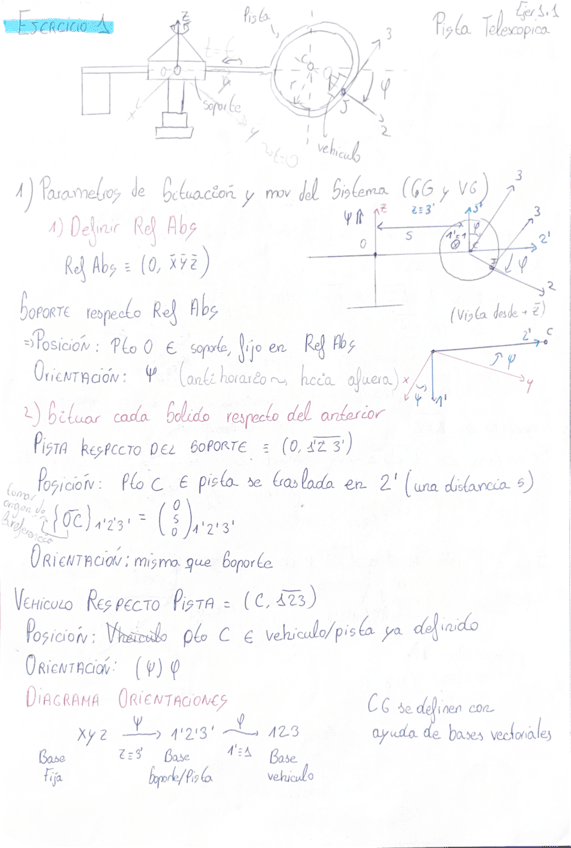 EJERCICIO 1
Pista
Ejer 1.1
Pista Telescopica
z
3
φ
C
r
J
2
soporte
vehiculo
x
y
t=0
1) Parametros de Situación y mov del Sistema (GG y VG)
1) Definir Ref Abs
Ref Abs ≡ (O, x̄ȳz̄)
ψ z z≡3' 3' 3
S 1'≡1 φ 3
O C 2'
J φ
2
(Vista desde + z̄)
SOPORTE respecto Ref Abs
⇒ Posición: Pto O ∈ soporte, fijo en Ref Abs
ORIENTACIÓN: ψ (antihorario ~ hacia afuera)
2' C
ψ
x ψ 1' y
2) Situar cada Solido respecto del anterior
PISTA RESPECTO DEL SOPORTE ≡ (O, 1'2'3')
Posición: Pto C ∈ pista se traslada en 2' (una distancia s)
tomar origen de
{OC}1'2'3' = (0 s 0)1'2'3'
ORIENTACIÓN: misma que Soporte
VEHICULO RESPECTO PISTA = (C, 123)
Posición: Vheiculo pto C ∈ vehiculo/pista ya definido
ORIENTACIÓN: (ψ) φ
DIAGRAMA ORIENTACIONES
CG se definen con
ayuda de bases vectoriales
xyz ψ→ 1'2'3' φ→ 123
z≡3' 1'≡1
Base Fija
Base Soporte/Pista
Base vehiculo